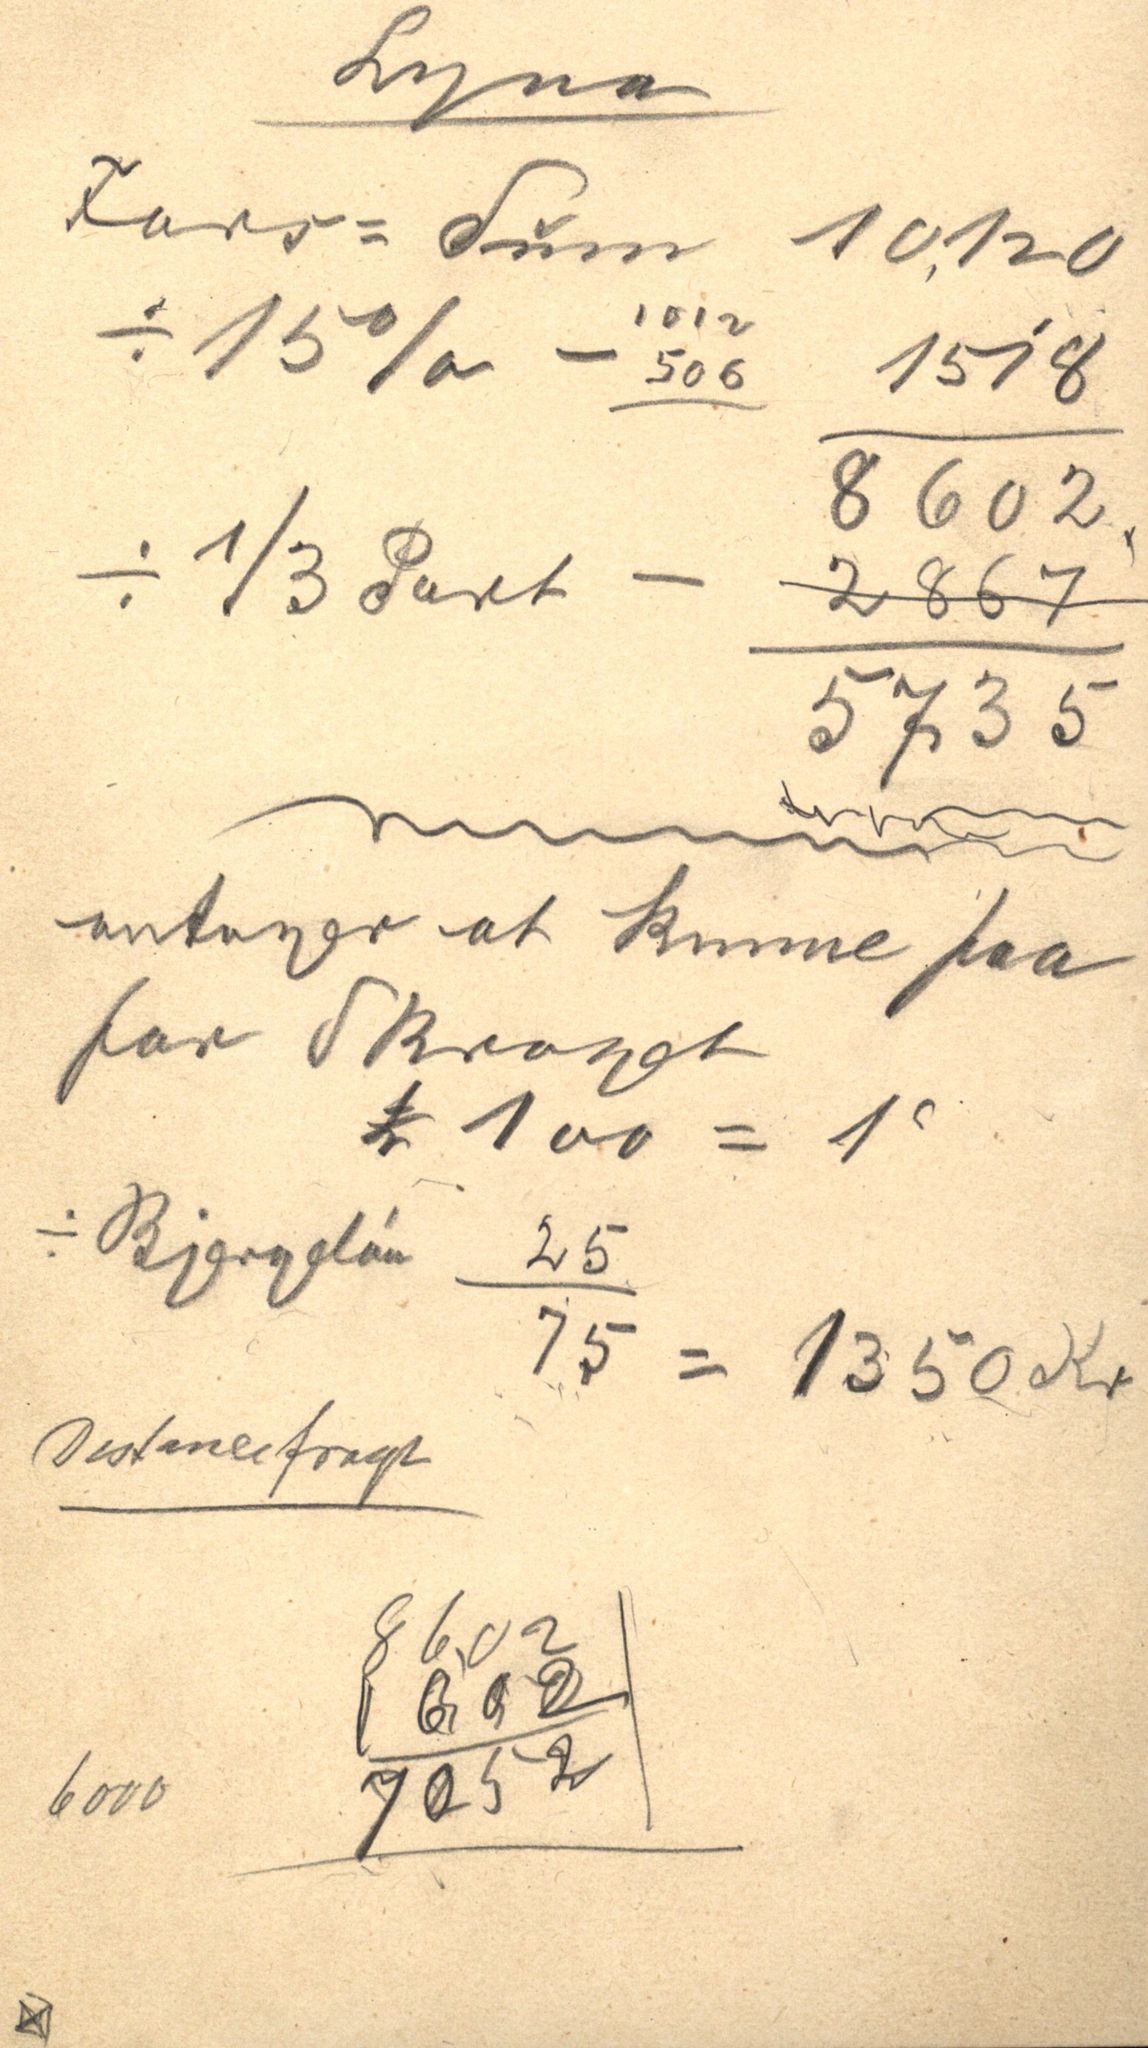 Lyna
Tars= Sum 10,120
÷ 15 % - 1012 1518
506
8602,
÷ 1/3 Part - 2867
5735
antager at kunne faa
for Skroget
£ 100 = 1
÷ Bjergeløn 25
75 = 1350 Kr
Distancefragt
8602
6000 7052